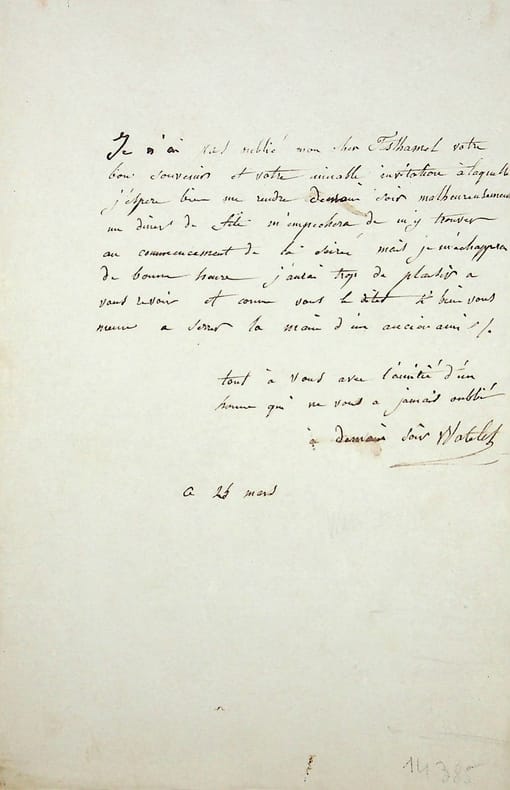 Je n'ai pas oublié mon cher votre
bon souvenir et votre aimable invitation à laquelle
j'espere bien me rendre demain soir malheureusement
un diner de m'empechera de m'y trouver
au commencement de la soiré mais je m'echappera
de bonne heure j'aurai trop de plaisir a
vous revoir et comme vous le si bien vous
meme a serrer la main d'un ancien ami /.
tout à vous avec l'amitié d'un
homme qui ne vous a jamais oublié
à demain soir Watelet
a 26 mars
14385